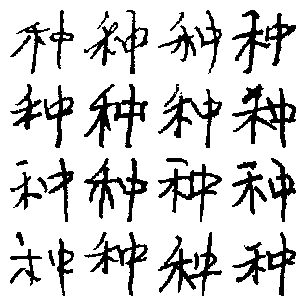 种种种种
种种种种
种种种种
种种种种